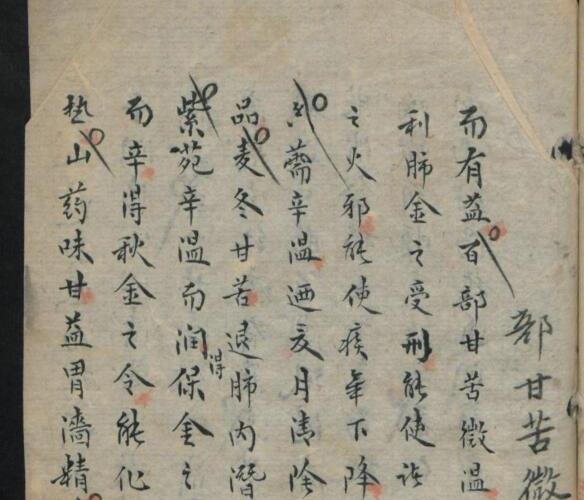 部甘苦微
而有益百部甘苦微温
利肺金之受刑能使
之火邪能使痰下降
薷辛温遇夏月清陰
品麦冬甘苦退肺内潛
紫苑辛温而潤得保金之
而辛得秋金之令能化
山药味甘益胃濇精